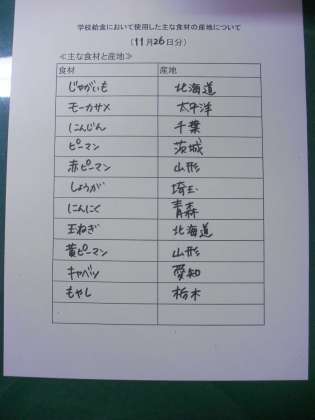 学校給食において使用した主な食材の産地について
(11月26日分)
≪主な食材と産地≫
食材 産地
じゃがいも 北海道
モーカサメ 太平洋
にんじん 千葉
ピーマン 茨城
赤ピーマン 山形
しょうが 埼玉
にんにく 青森
玉ねぎ 北海道
黄ピーマン 山形
キャベツ 愛知
もやし 栃木